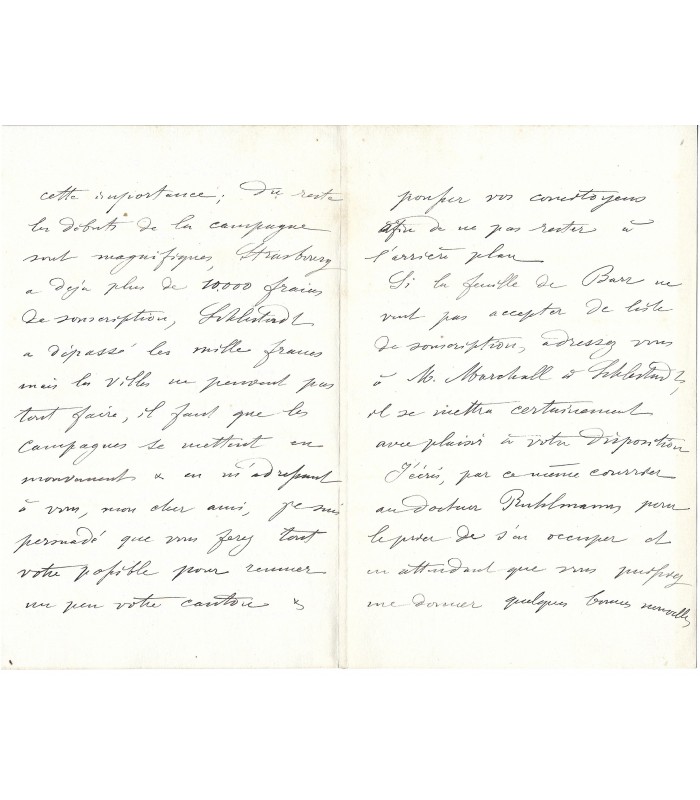 cette importance ; Du reste
les débuts de la campagne
sont magnifiques, Strasbourg
a deja plus de 10000 francs
de souscription, Schlestadt
a dépassé les mille francs
mais les villes ne peuvent pas
tout faire, il faut que les
campagnes se mettent en
mouvement & en m'adressant
à vous, mon cher ami, je suis
persuadé que vous ferez tout
votre possible pour remuer
un peu votre canton &
pousser vos concitoyens
afin de ne pas rester à
l'arrière plan
Si la feuille de Barr ne
veut pas accepter de liste
de souscription, adressez vous
à M. Marchall à Schlestadt,
il se mettra certainement
avec plaisir à votre disposition
J'écris, par ce même courrier
au docteur Ruhlmann pour
le prier de s'en occuper et
en attendant que vous puissiez
me donner quelques bonnes nouvelles